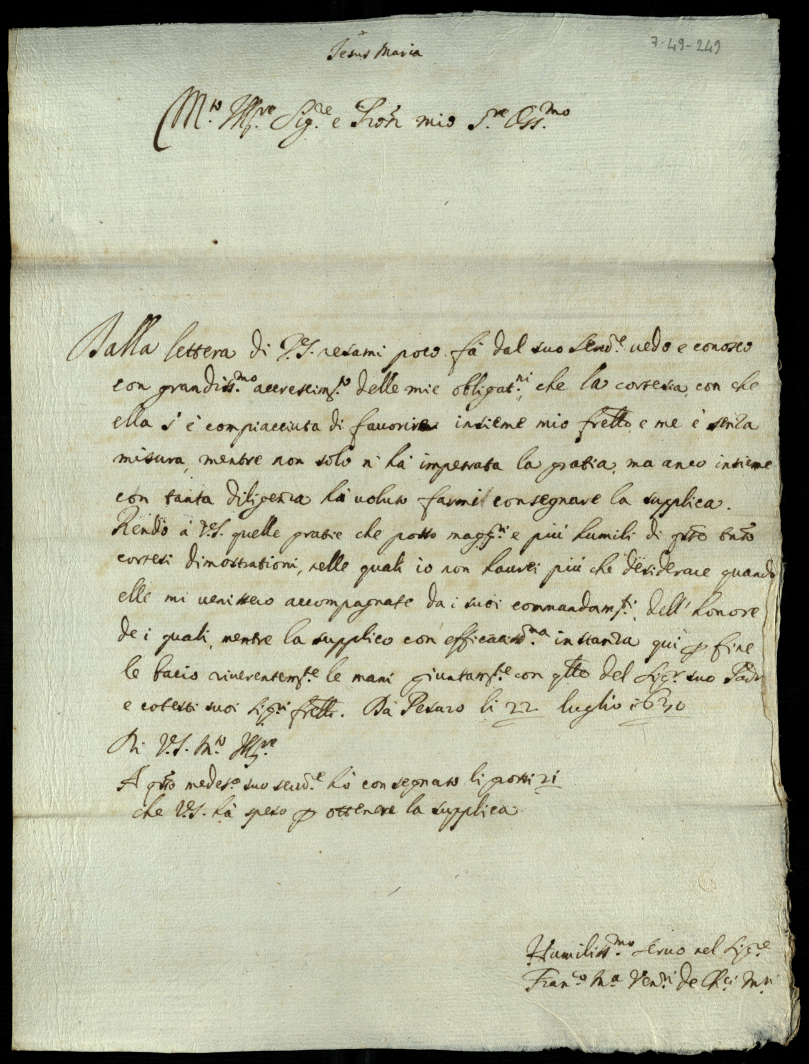 7-49-249
Jesus Maria
M.to Ill.re Sig.re e Pron mio S.re Oss.mo
Dalla lettera di V.S. resami poco fà dal suo serv.e vedo e conosco
con grandiss.mo accrescim.to delle mie obligat.ni, che la cortesia con che
ella s'è compiacciuta di favorire insieme mio frello e me è senza
misura, mentre non solo n'hà impetrata la gratia, ma anco insieme
con tanta diligenza hà voluto farmi consegnare la supplica.
Rendo à V.S. quelle gratie che posso magg.ri e più humili di q.sto
cortesi dimostrationi, nelle quali io non haurei più che desiderare quando
elle mi venissero accompagnate da i suoi commandam.ti, dell'honore
de i quali, mentre la supplico con efficaciss.ma instanza qui p fine
le bacio riverentem.te le mani giuntam.te con q.lle del Sig.r suo Padre
e cotesti suoi Sig.ri frelli. Da Pesaro li 22 luglio 1630
Di V.S. M.to Ill.re
A q.sto medes.o suo serv.e hò consegnato li grossi 21
che V.S. hà speso p ottenere la supplica
Humiliss.mo servo nel Sig.re
Fran.co M.a de Ch.ci M.ri